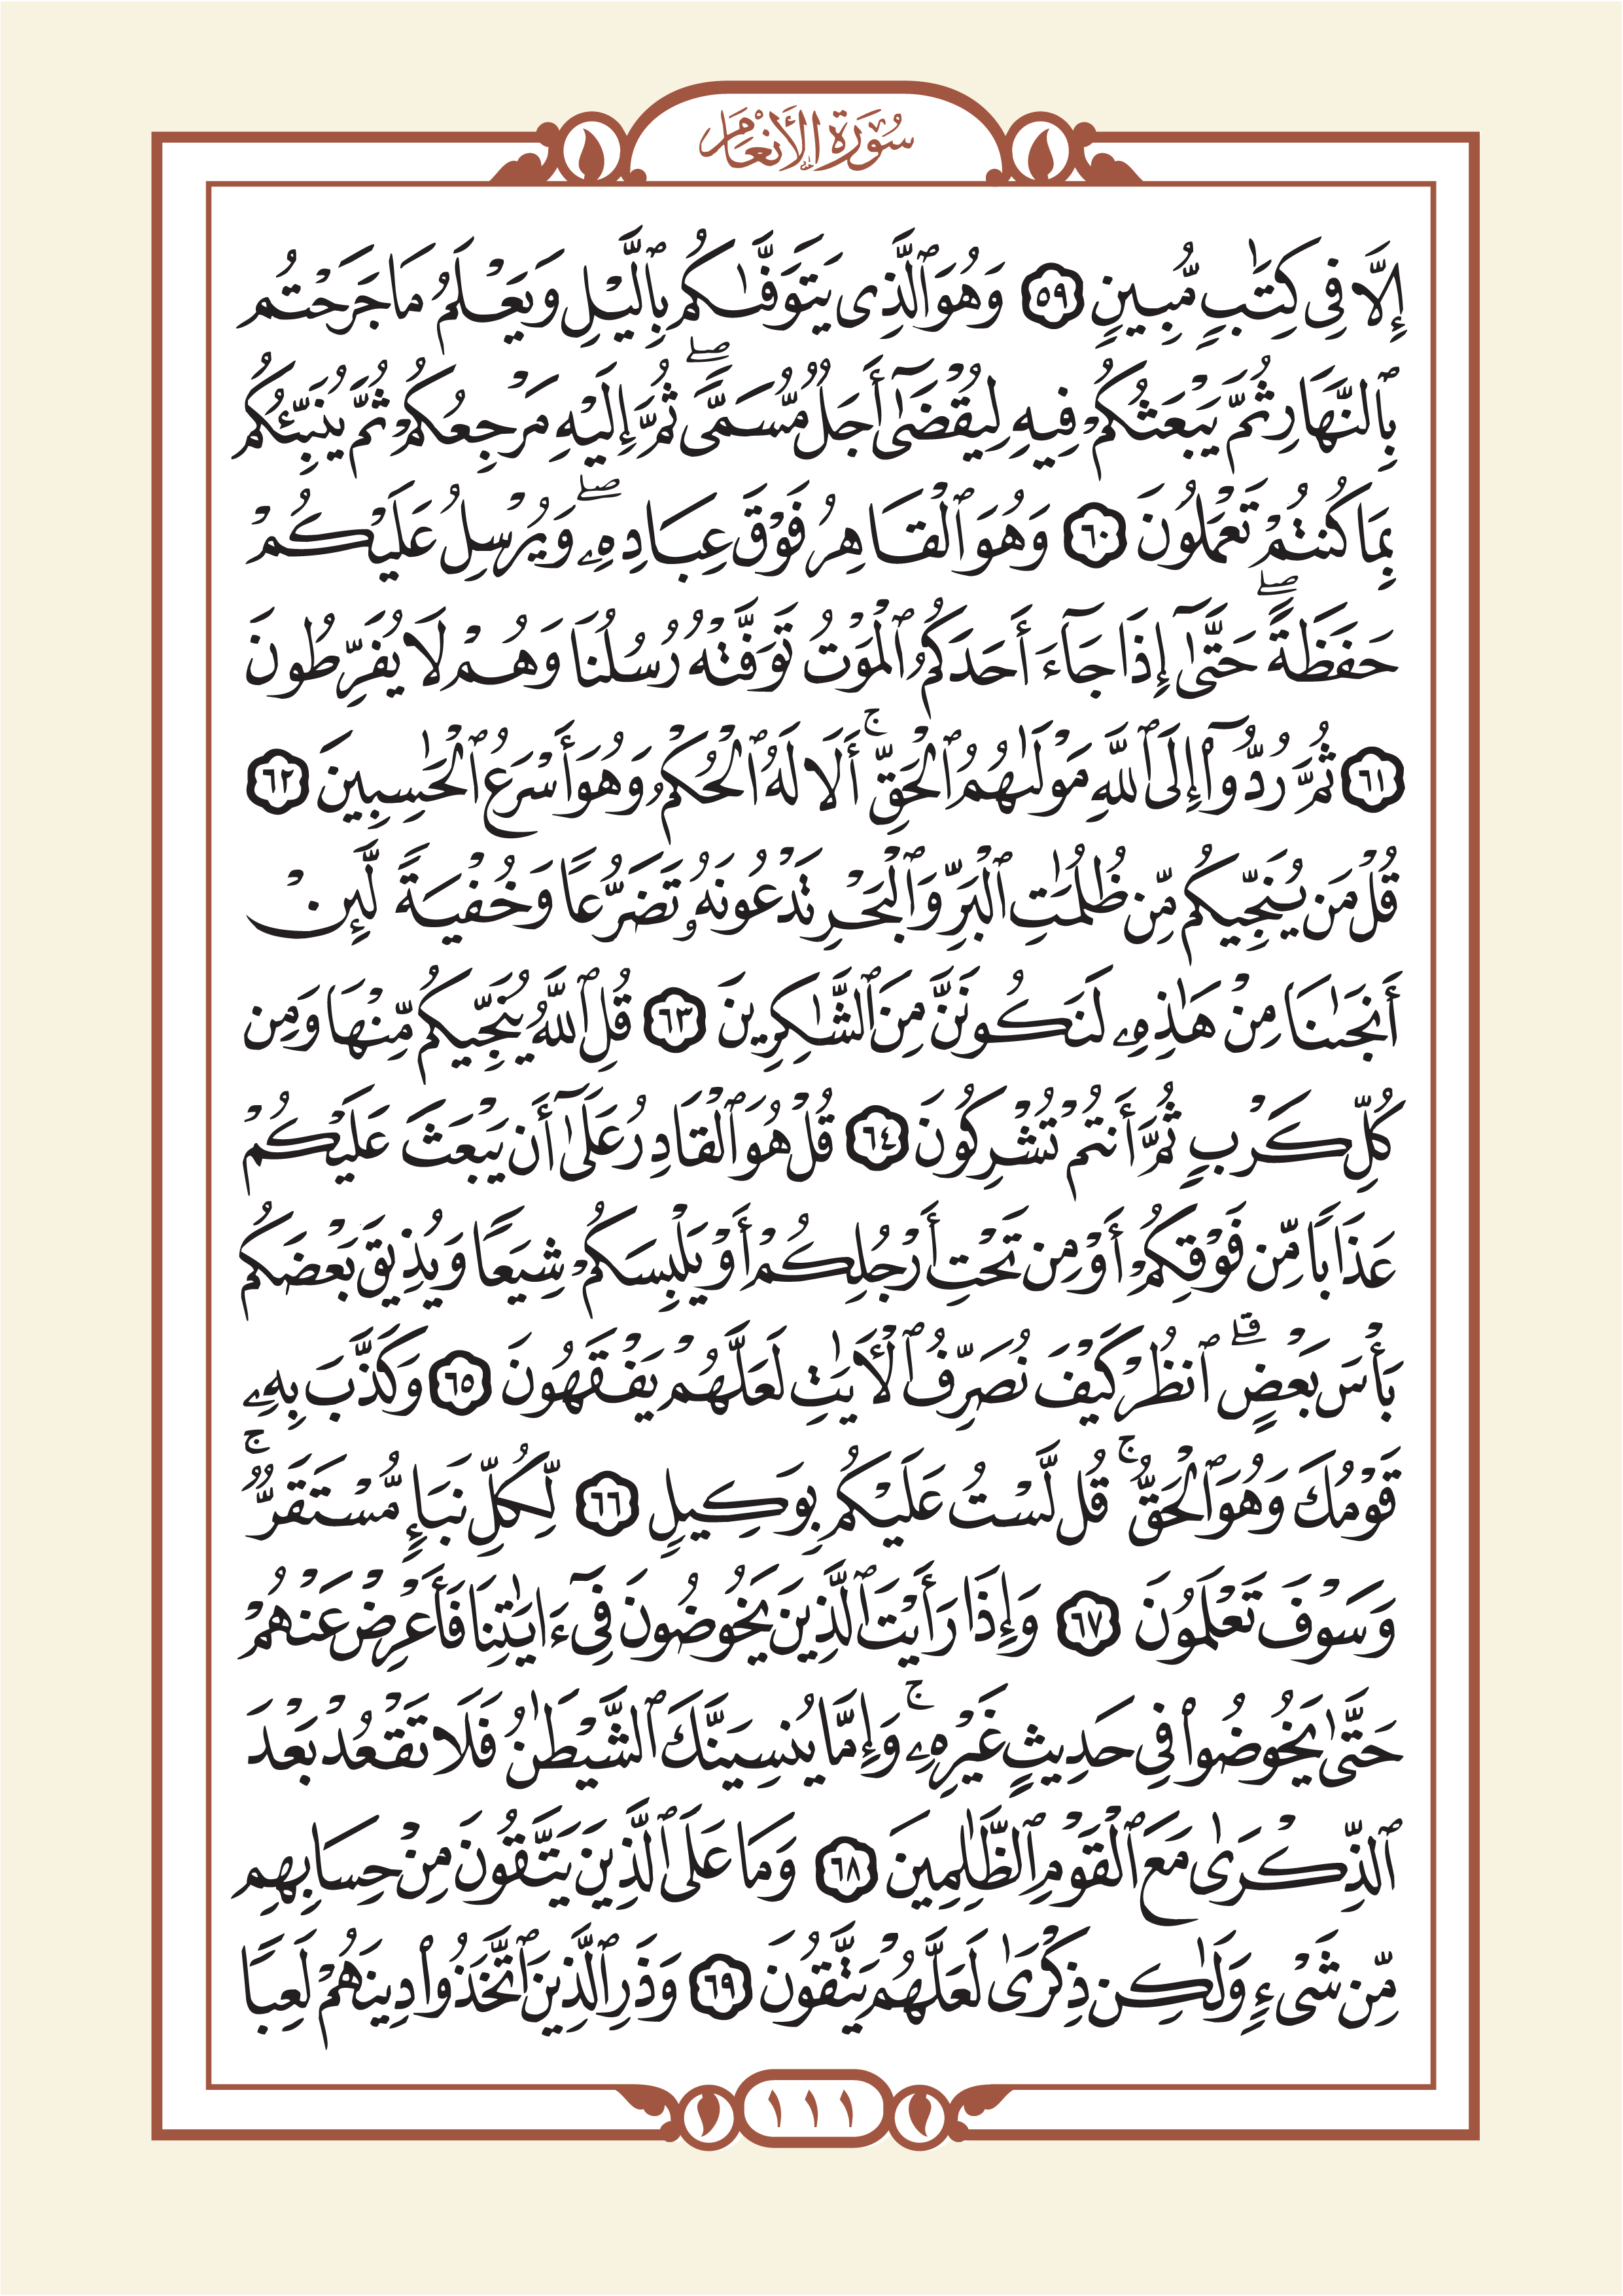 سُورَةُ الأَنْعَامِ
إِلَّا فِى كِتَٰبٍ مُّبِينٍ ٥٩ وَهُوَ ٱلَّذِى يَتَوَفَّىٰكُم بِٱلَّيْلِ وَيَعْلَمُ مَا جَرَحْتُم
بِٱلنَّهَارِ ثُمَّ يَبْعَثُكُمْ فِيهِ لِيُقْضَىٰٓ أَجَلٌ مُّسَمًّىۖ ثُمَّ إِلَيْهِ مَرْجِعُكُمْ ثُمَّ يُنَبِّئُكُم
بِمَا كُنتُمْ تَعْمَلُونَ ٦٠ وَهُوَ ٱلْقَاهِرُ فَوْقَ عِبَادِهِۦۖ وَيُرْسِلُ عَلَيْكُمْ
حَفَظَةًۖ حَتَّىٰٓ إِذَا جَآءَ أَحَدَكُمُ ٱلْمَوْتُ تَوَفَّتْهُ رُسُلُنَا وَهُمْ لَا يُفَرِّطُونَ
٦١ ثُمَّ رُدُّوٓا۟ إِلَى ٱللَّهِ مَوْلَىٰهُمُ ٱلْحَقِّۚ أَلَا لَهُ ٱلْحُكْمُ وَهُوَ أَسْرَعُ ٱلْحَٰسِبِينَ ٦٢
قُلْ مَن يُنَجِّيكُم مِّن ظُلُمَٰتِ ٱلْبَرِّ وَٱلْبَحْرِ تَدْعُونَهُۥ تَضَرُّعًا وَخُفْيَةً لَّئِنْ
أَنجَىٰنَا مِنْ هَٰذِهِۦ لَنَكُونَنَّ مِنَ ٱلشَّٰكِرِينَ ٦٣ قُلِ ٱللَّهُ يُنَجِّيكُم مِّنْهَا وَمِن
كُلِّ كَرْبٍ ثُمَّ أَنتُمْ تُشْرِكُونَ ٦٤ قُلْ هُوَ ٱلْقَادِرُ عَلَىٰٓ أَن يَبْعَثَ عَلَيْكُمْ
عَذَابًا مِّن فَوْقِكُمْ أَوْ مِن تَحْتِ أَرْجُلِكُمْ أَوْ يَلْبِسَكُمْ شِيَعًا وَيُذِيقَ بَعْضَكُم
بَأْسَ بَعْضٍۗ ٱنظُرْ كَيْفَ نُصَرِّفُ ٱلْـَٔايَٰتِ لَعَلَّهُمْ يَفْقَهُونَ ٦٥ وَكَذَّبَ بِهِۦ
قَوْمُكَ وَهُوَ ٱلْحَقُّۚ قُل لَّسْتُ عَلَيْكُم بِوَكِيلٍ ٦٦ لِّكُلِّ نَبَإٍ مُّسْتَقَرٌّۚ
وَسَوْفَ تَعْلَمُونَ ٦٧ وَإِذَا رَأَيْتَ ٱلَّذِينَ يَخُوضُونَ فِىٓ ءَايَٰتِنَا فَأَعْرِضْ عَنْهُمْ
حَتَّىٰ يَخُوضُوا۟ فِى حَدِيثٍ غَيْرِهِۦۚ وَإِمَّا يُنسِيَنَّكَ ٱلشَّيْطَٰنُ فَلَا تَقْعُدْ بَعْدَ
ٱلذِّكْرَىٰ مَعَ ٱلْقَوْمِ ٱلظَّٰلِمِينَ ٦٨ وَمَا عَلَى ٱلَّذِينَ يَتَّقُونَ مِنْ حِسَابِهِم
مِّن شَىْءٍ وَلَٰكِن ذِكْرَىٰ لَعَلَّهُمْ يَتَّقُونَ ٦٩ وَذَرِ ٱلَّذِينَ ٱتَّخَذُوا۟ دِينَهُمْ لَعِبًا
١١١